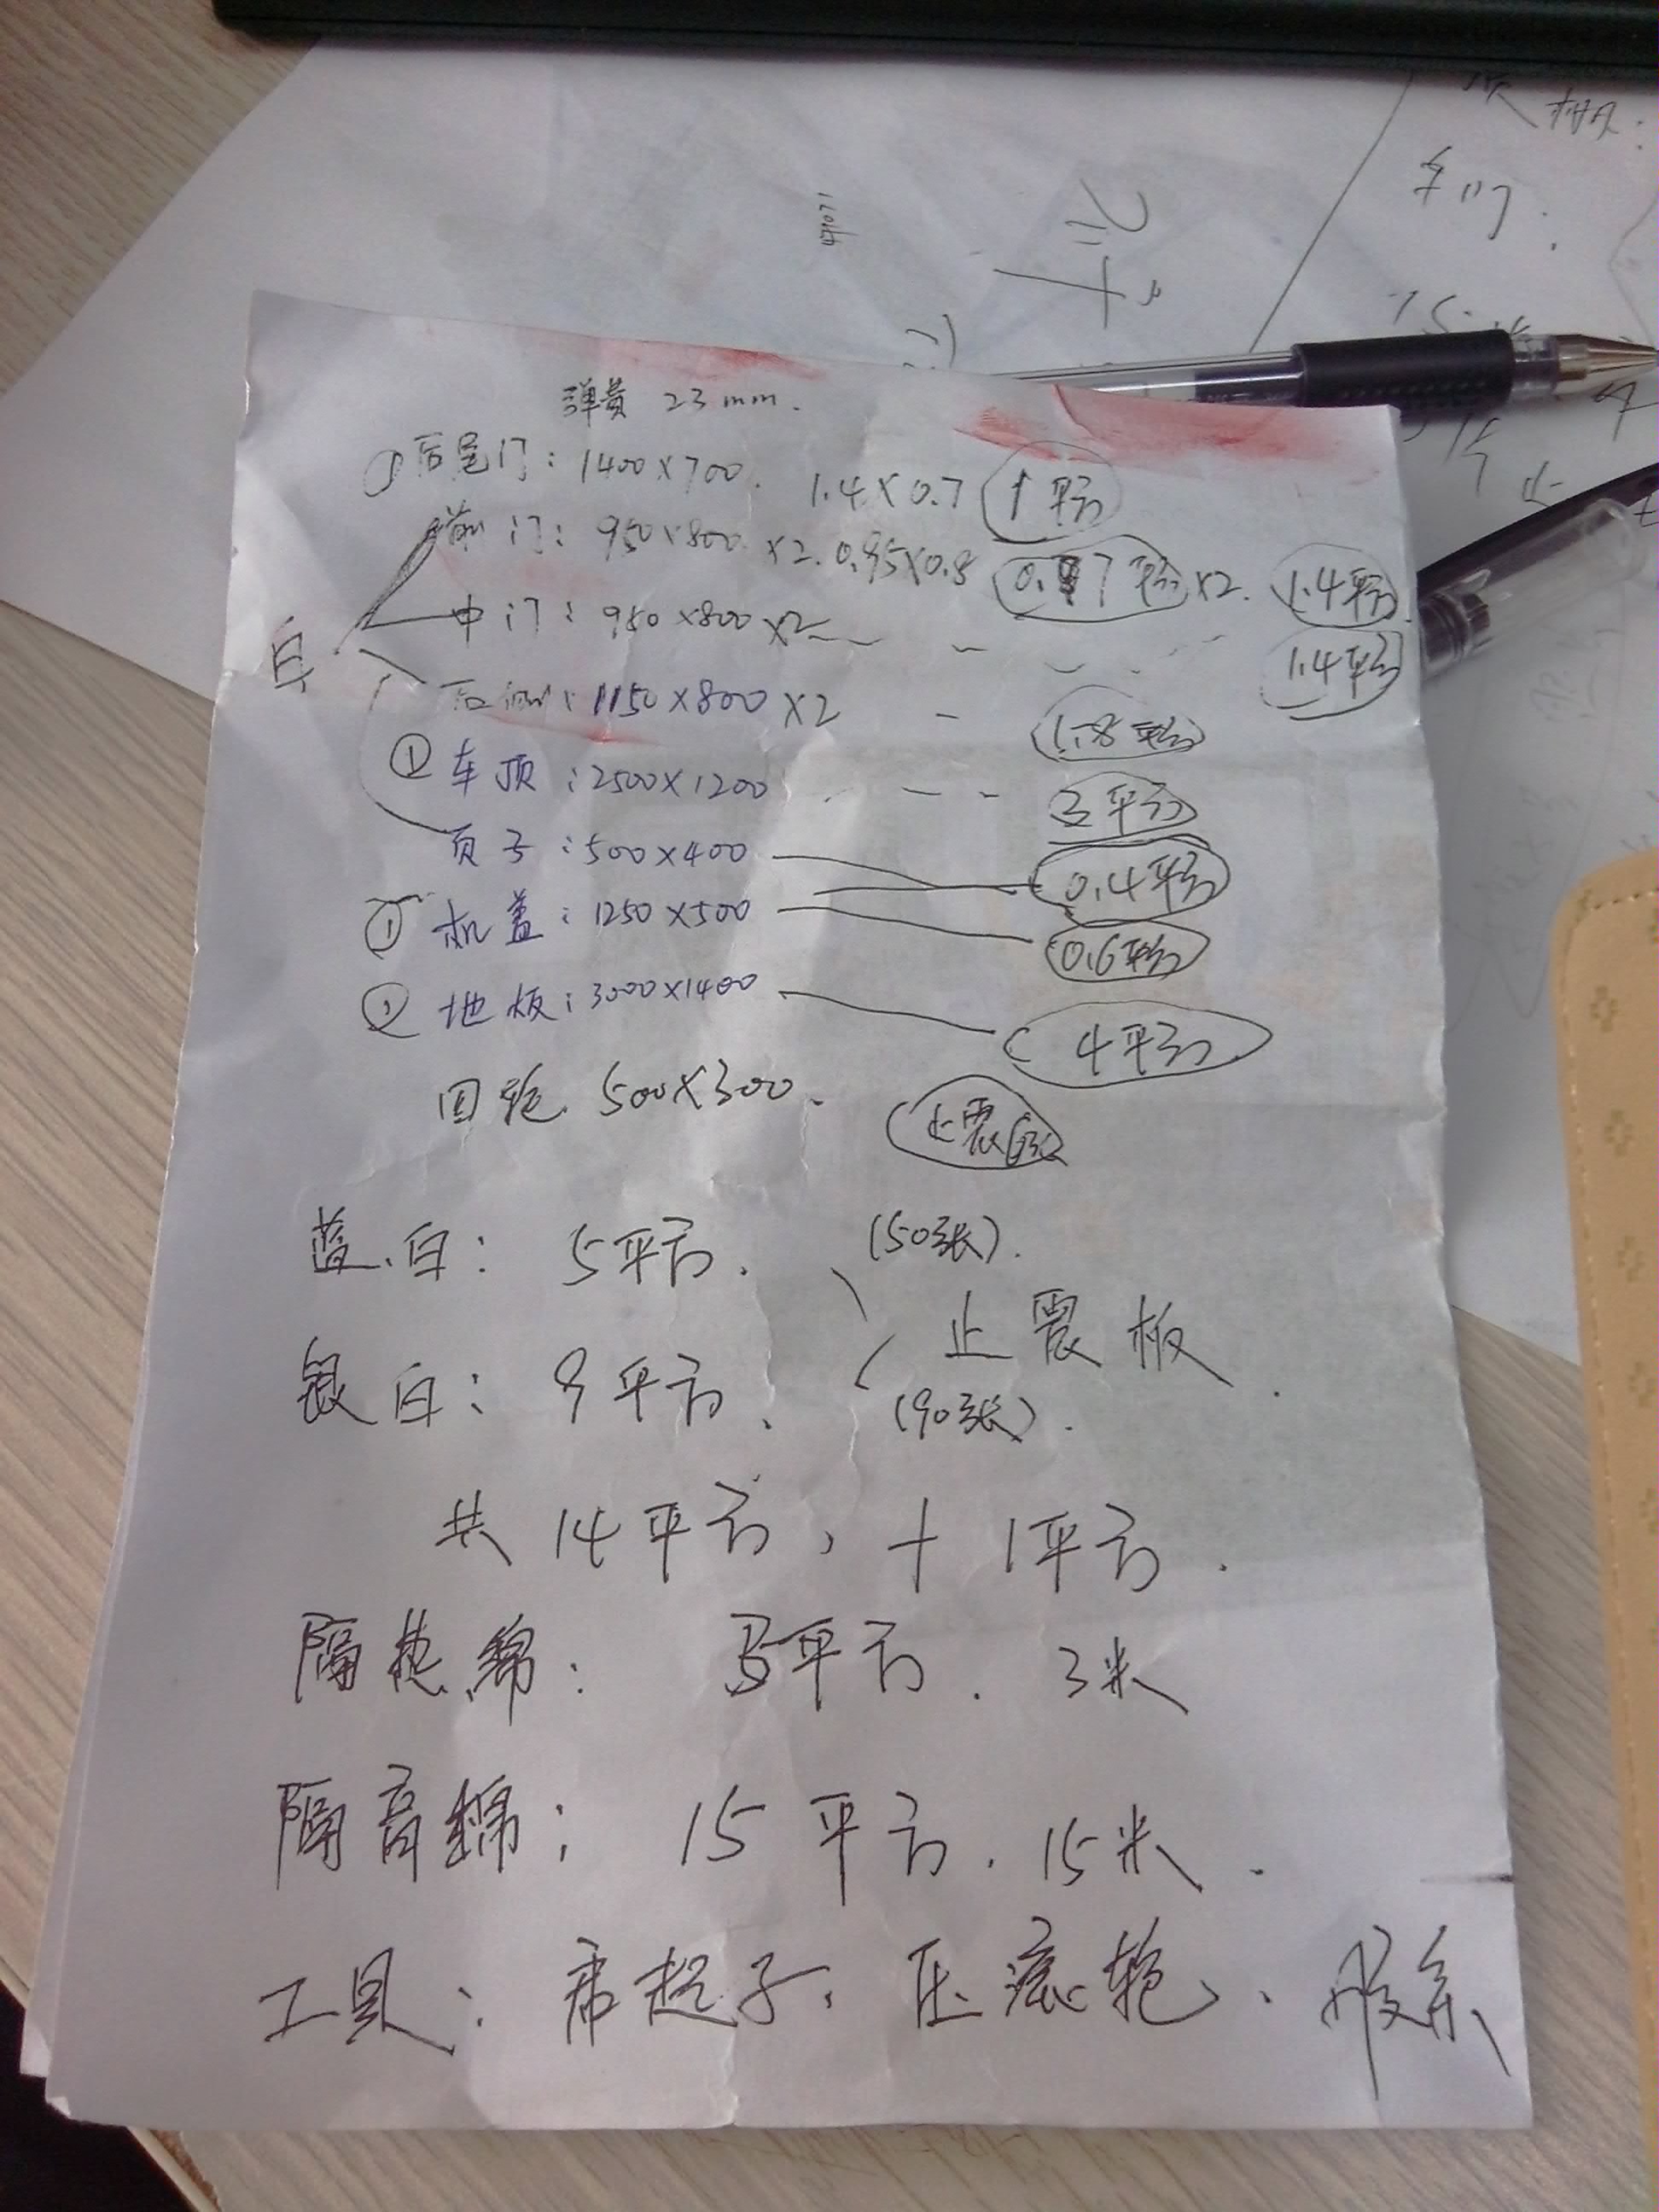 弹黄 23mm.
① 后尾门: 1400×700. 1.4×0.7 1平方
前门: 950×800 ×2. 0.95×0.8 0.7平方 ×2. 1.4平方
中门: 950×800 ×2 1.4平方
白
后侧: 1150×800 ×2 - 1.8平方
① 车顶: 2500×1200 --- 3平方
页子: 500×400 0.4平方
① 机盖: 1250×500 0.6平方
① 地板: 3000×1400 4平方
500×300.
止震
蓝.白: 5平方. (50张).
止震板.
银白: 9平方. (90张).
共14平方, + 1平方.
隔热綿: 5平方. 3米
隔音綿: 15平方. 15米.
工具: 起子. 压
车门.